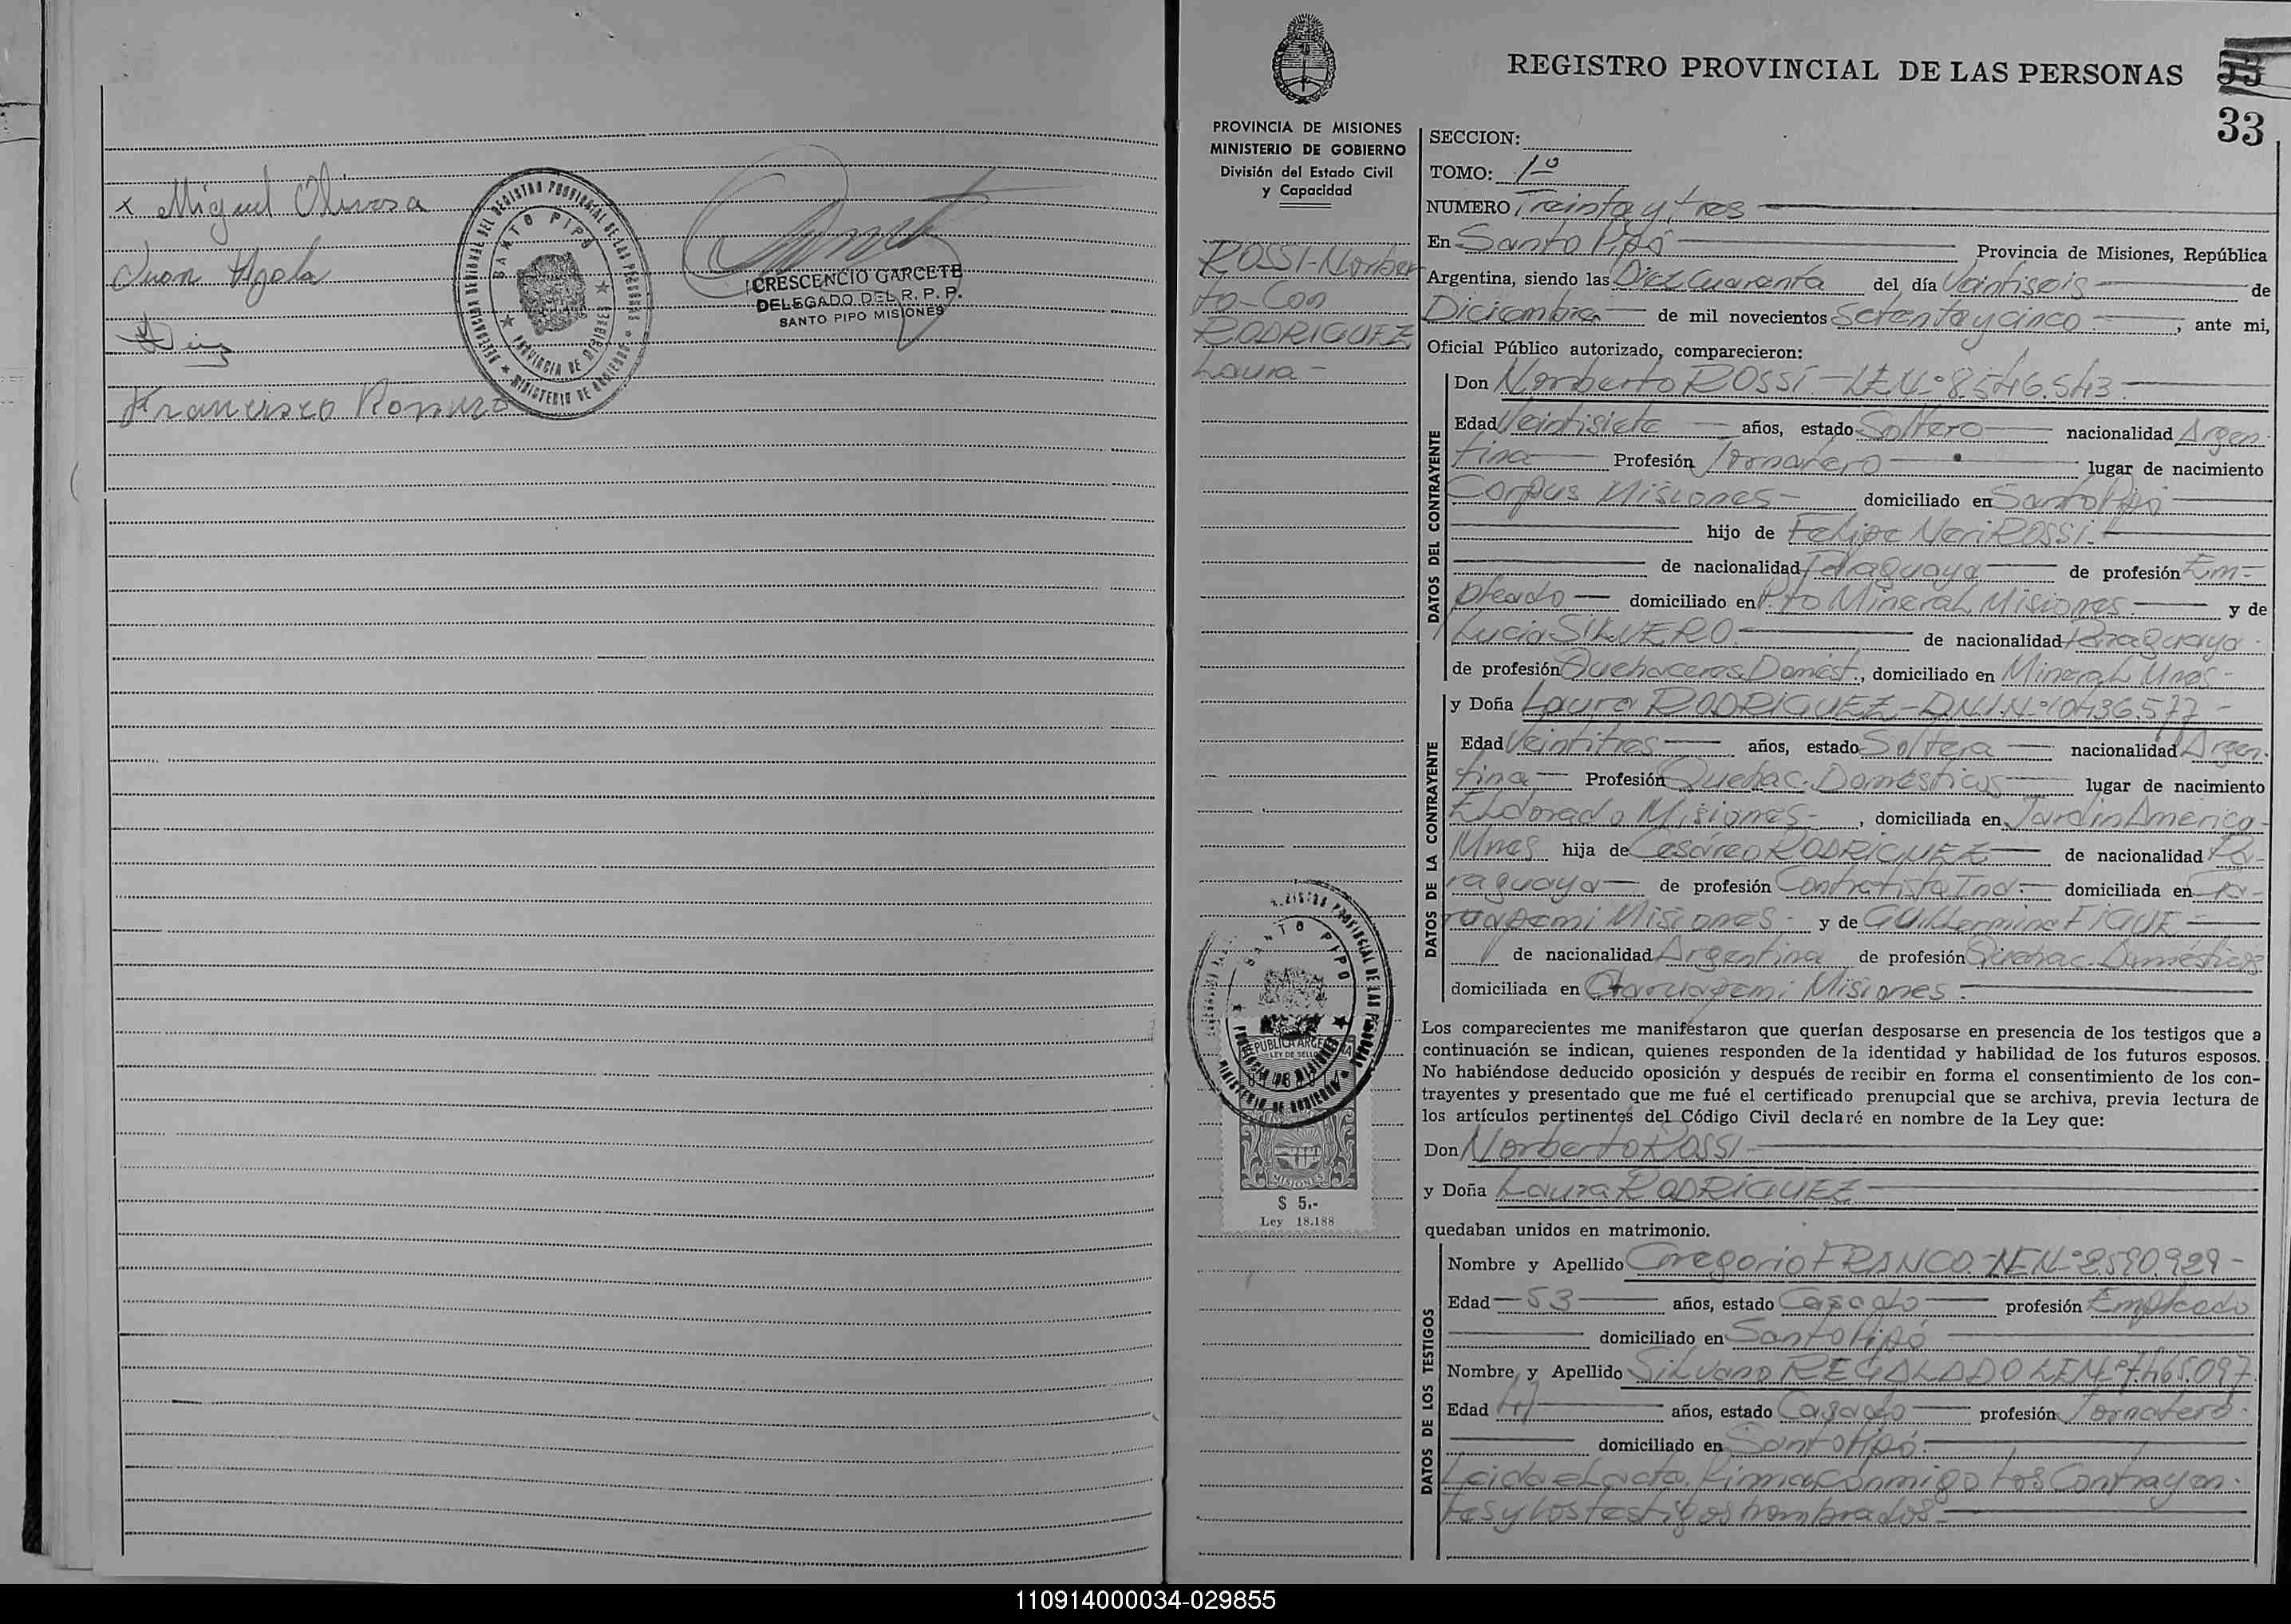 x Miguel Olivera
Juan Ayala
Francisco Romero
DELEGACION REGIONAL DEL REGISTRO PROVINCIAL DE LAS PERSONAS
SANTO PIPO
PROVINCIA DE MISIONES
MINISTERIO DE GOBIERNO
CRESCENCIO GARCETE
DELEGADO DEL R. P. P.
SANTO PIPO MISIONES
REGISTRO PROVINCIAL DE LAS PERSONAS
33
PROVINCIA DE MISIONES
MINISTERIO DE GOBIERNO
División del Estado Civil
y Capacidad
ROSSI-Norber
to-Con
RODRIGUEZ
Laura-
SECCION:
TOMO: 1º
NUMERO Treinta y tres
En Santo Pipó Provincia de Misiones, República
Argentina, siendo las Diez Cuarenta del día Veintiseis de
Diciembre de mil novecientos Setenta y cinco, ante mi,
Oficial Público autorizado, comparecieron:
DATOS DEL CONTRAYENTE
Don Norberto ROSSI-LE Nº 8.546.543
Edad Veintisiete años, estado Soltero nacionalidad Argen-
tina Profesión Tornatero lugar de nacimiento
Corpus Misiones- domiciliado en Santo Pipó
hijo de Felipe Neri ROSSI.-
de nacionalidad Paraguaya de profesión Em-
pleado domiciliado en Pto Mineral Misiones y de
Lucia SILVERO de nacionalidad Paraguaya
de profesión Quehaceres Domest., domiciliado en Mineral Mnes-
DATOS DE LA CONTRAYENTE
y Doña Laura RODRIGUEZ-D.N.I.Nº 10436.577-
Edad Veintitres años, estado Soltera nacionalidad Argen-
tina Profesión Quehac. Domésticos lugar de nacimiento
Eldorado Misiones-, domiciliada en Jardin America-
Mnes hija de Cesáreo RODRIGUEZ de nacionalidad Pa-
raguaya de profesión Contratista Ind. domiciliada en
Misiones y de Guillermina
de nacionalidad Argentina de profesión Quehac. Domésticos
domiciliada en Misiones.
Los comparecientes me manifestaron que querían desposarse en presencia de los testigos que a
continuación se indican, quienes responden de la identidad y habilidad de los futuros esposos.
No habiéndose deducido oposición y después de recibir en forma el consentimiento de los con-
trayentes y presentado que me fué el certificado prenupcial que se archiva, previa lectura de
los artículos pertinentes del Código Civil declaré en nombre de la Ley que:
Don Norberto ROSSI
y Doña Laura RODRIGUEZ
quedaban unidos en matrimonio.
DATOS DE LOS TESTIGOS
Nombre y Apellido Gregorio FRANCO.
Edad 53 años, estado Casado profesión Empleado
domiciliado en Santo Pipó
Nombre y Apellido Silvano REGALADO LE Nº 7.465.097
Edad años, estado Casado profesión Tornatero.
domiciliado en Santo Pipó.
Leida el acta, firman conmigo los Contrayen-
tes y los testigos nombrados-
SANTO PIPO
MISIONES
$ 5.-
Ley 18.188
110914000034-029855